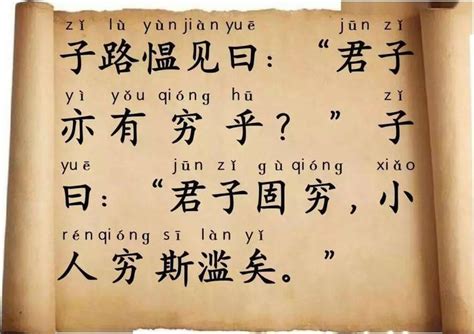 zǐ lù yùn jiàn yuē jūn zǐ
子路愠见曰：“君子
yì yǒu qióng hū zǐ
亦有穷乎？”子
yuē jūn zǐ gù qióng xiǎo
曰：“君子固穷，小
rén qióng sī làn yǐ
人穷斯滥矣。”